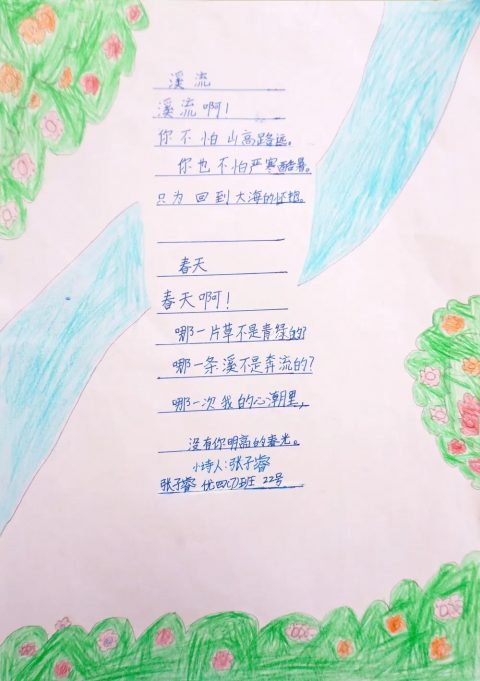 溪流
溪流啊!
你不怕山高路远。
你也不怕严寒酷暑。
只为回到大海的怀抱。
春天
春天啊!
哪一片草不是青绿的?
哪一条溪不是奔流的?
哪一次我的心潮里,
没有你明亮的春光。
小诗人:张子睿
张子睿 优四(7)班 22号